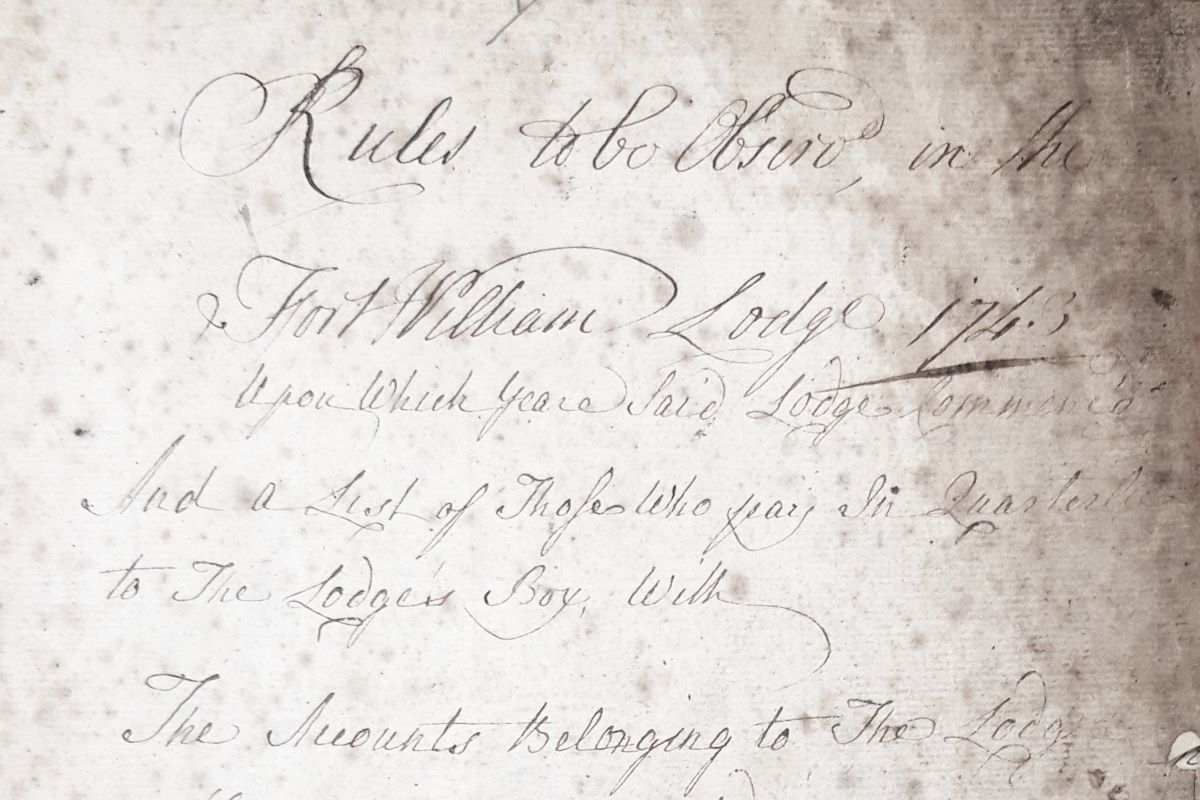 Rules to be Observd, in the
Fort William Lodge 1743
Upon Which Yeare Said Lodge Commenc'd
And a List of Those Who pay In Quarterl
to The Lodge's Box, With
The Accounts Belonging to The Lodg